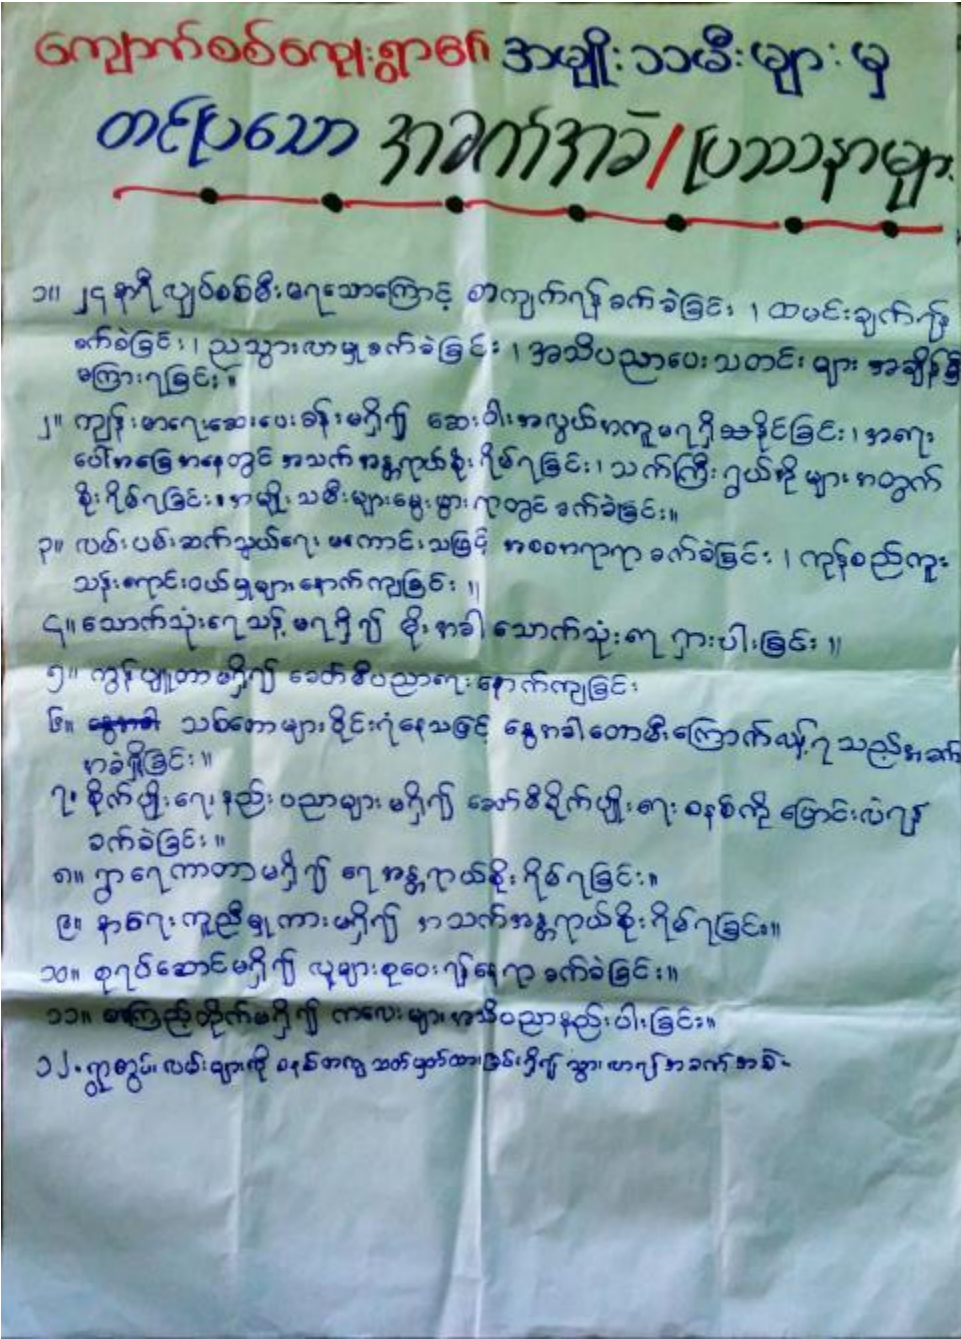 ကျောက်စစ်ကျေးရွာ၏ အမျိုးသမီးများ မှ
တင်ပြသော အခက်အခဲ / ပြဿနာများ
၁။ ၂၄ နာရီ လျှပ်စစ်မီးမရသောကြောင့် စာကျက်ရန် ခက်ခဲခြင်း ၊ ထမင်းချက်ရန်
ခက်ခဲခြင်း ၊ ညသွားလာမှု ခက်ခဲခြင်း ၊ အသိပညာပေး သတင်း များ အချိန်မှီ
မကြားရခြင်း ။
၂။ ကျန်းမာရေးဆေးပေးခန်းမရှိ၍ ဆေးဝါးအလွယ်တကူမရရှိနိုင်ခြင်း ၊ အရေး
ပေါ်အခြေအနေတွင် အသက်အန္တရာယ်စိုးရိမ်ရခြင်း ၊ သက်ကြီးရွယ်အိုများအတွက်
စိုးရိမ်ရခြင်း ။ အမျိုးသမီးများမွေးဖွားရာတွင် ခက်ခဲခြင်း။
၃။ လမ်းပမ်းဆက်သွယ်ရေး မကောင်းသဖြင့် အစစအရာရာ ခက်ခဲခြင်း ၊ ကုန်စည်ကူး
သန်းရောင်းဝယ်မှုများနောက်ကျခြင်း ။
၄။ သောက်သုံးရေသန့် မရရှိ၍ မိုးအခါ သောက်သုံးရေ ရှားပါးခြင်း ။
၅။ ကွန်ပျူတာမရှိ၍ ခေတ်မီပညာရေးနောက်ကျခြင်း
၆။ သစ်တောများဝိုင်းရံနေသဖြင့် နွေအခါတောမီးကြောက်လန့်ရသည့်အခက်
အခဲရှိခြင်း ။
၇။ စိုက်ပျိုးရေးနည်းပညာများ မရှိ၍ ခေတ်မီစိုက်ပျိုးရေး စနစ်ကို ပြောင်းလဲရန်
ခက်ခဲခြင်း ။
၈။ ရွာရေကာတာမရှိ၍ ရေအန္တရာယ်စိုးရိမ်ရခြင်း။
၉။ နာရေးကူညီမှုကားမရှိ၍ အသက်အန္တရာယ်စိုးရိမ်ရခြင်း။
၁၀။ စုရပ်ဆောင်မရှိ၍ လူများစုဝေးရန်နေရာ ခက်ခဲခြင်း။
၁၁။ စာကြည့်တိုက်မရှိ၍ ကလေးများအသိပညာနည်းပါးခြင်း။
၁၂။ ရွာတွင်း လမ်းများကို စနစ်တကျ သတ်မှတ်ထားခြင်းမရှိ၍ သွားလာရ အခက်အခဲ